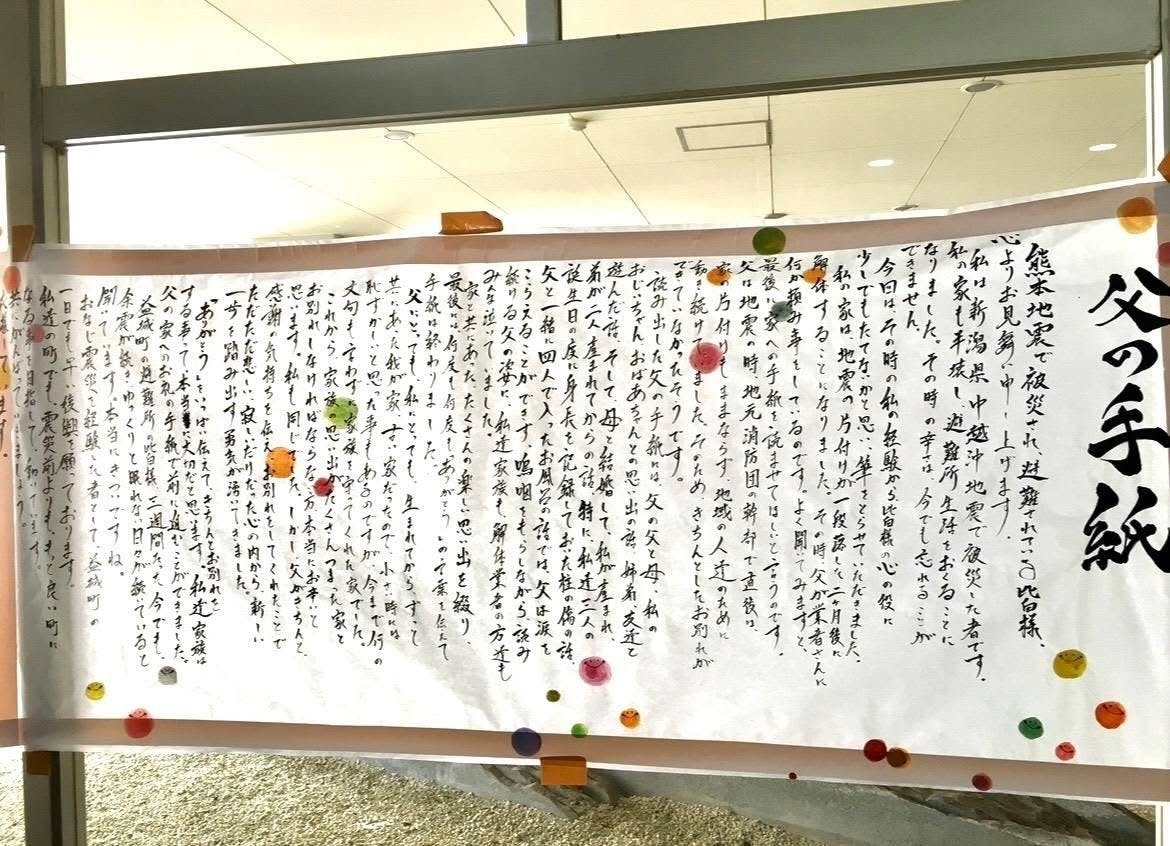 父の手紙
熊本地震で被災され、避難されている皆様、
心よりお見舞い申し上げます。
私は新潟県中越沖地震で被災した者です。
私の家も半壊し、避難所生活をおくることに
なりました。その時の幸せは、今でも忘れることが
できません。
今回は、その時の私の経験から皆様の心の役に
少しでもたてないかと思い、筆をとらせていただきました。
私の家は地震の片付けが一段落した二ヶ月後に
解体することになりました。その時、父が業者さんに
何か頼み事をしているのです。よく聞いてみますと、
最後に家への手紙を読ませてほしいと言うのです。
父は地震の時、地元消防団の幹部で直後は、
家の片付けもしままならず、地域の人達のために
動き続けていました。そのため、きちんとしたお別れが
できていなかったそうです。
読み出した父の手紙には、父の父と母、私の
おじいちゃん、おばあちゃんとの思い出の話、姉弟友達と
遊んだ話、そして母と結婚して、私が産まれ、
弟が二人産まれてからの話、特に、私達三人の
誕生日の度に身長を記録しておいた柱の傷の話、
父と一緒に四人で入ったお風呂の話では、父は涙を
こらえることができず、嗚咽をもらしながら、読み
続ける父の姿に、私達家族も解体業者の方達も
みんな泣いていました。
家と共にあったたくさんの楽しい思い出を綴り、
最後には何度も何度も「ありがとう」の言葉を伝えて
手紙は終わりました。
父にとっても、私にとっても、生まれてから、ずっと
共にあった我が家、古い家だったので、小さい時には
恥ずかしいと思った事もあるのですが、今まで何の
文句も言わずに家族を守ってくれた家とも
これから、家族の思い出がたくさんつまった家と
お別れしなければならない方本当にお辛いと
思います。私も同じでした。しかし父がきちんと、
感謝の気持ちを伝えお別れをしてくれたことで
ただただ悲しい、寂しいだけだった心の内から、新しい
一歩を踏み出す勇気が湧いてきました。
「ありがとう」をいっぱい伝えて、きちんとお別れを
する事って、本当に大切だと思います。私達家族は
父の家へのお礼の手紙で前に進むことができました。
益城町の避難所の皆様、三週間たった今でも、
余震が続き、ゆっくりと眠れない日々が続いていると
聞いています。本当にきついですね。
おなじ震災を経験した者として、益城町の
一日でも早い復興を願っております。
私達の町でも、震災前よりも、もっと良い町に
なる事を目指して、
共にがんばっていきましょう。